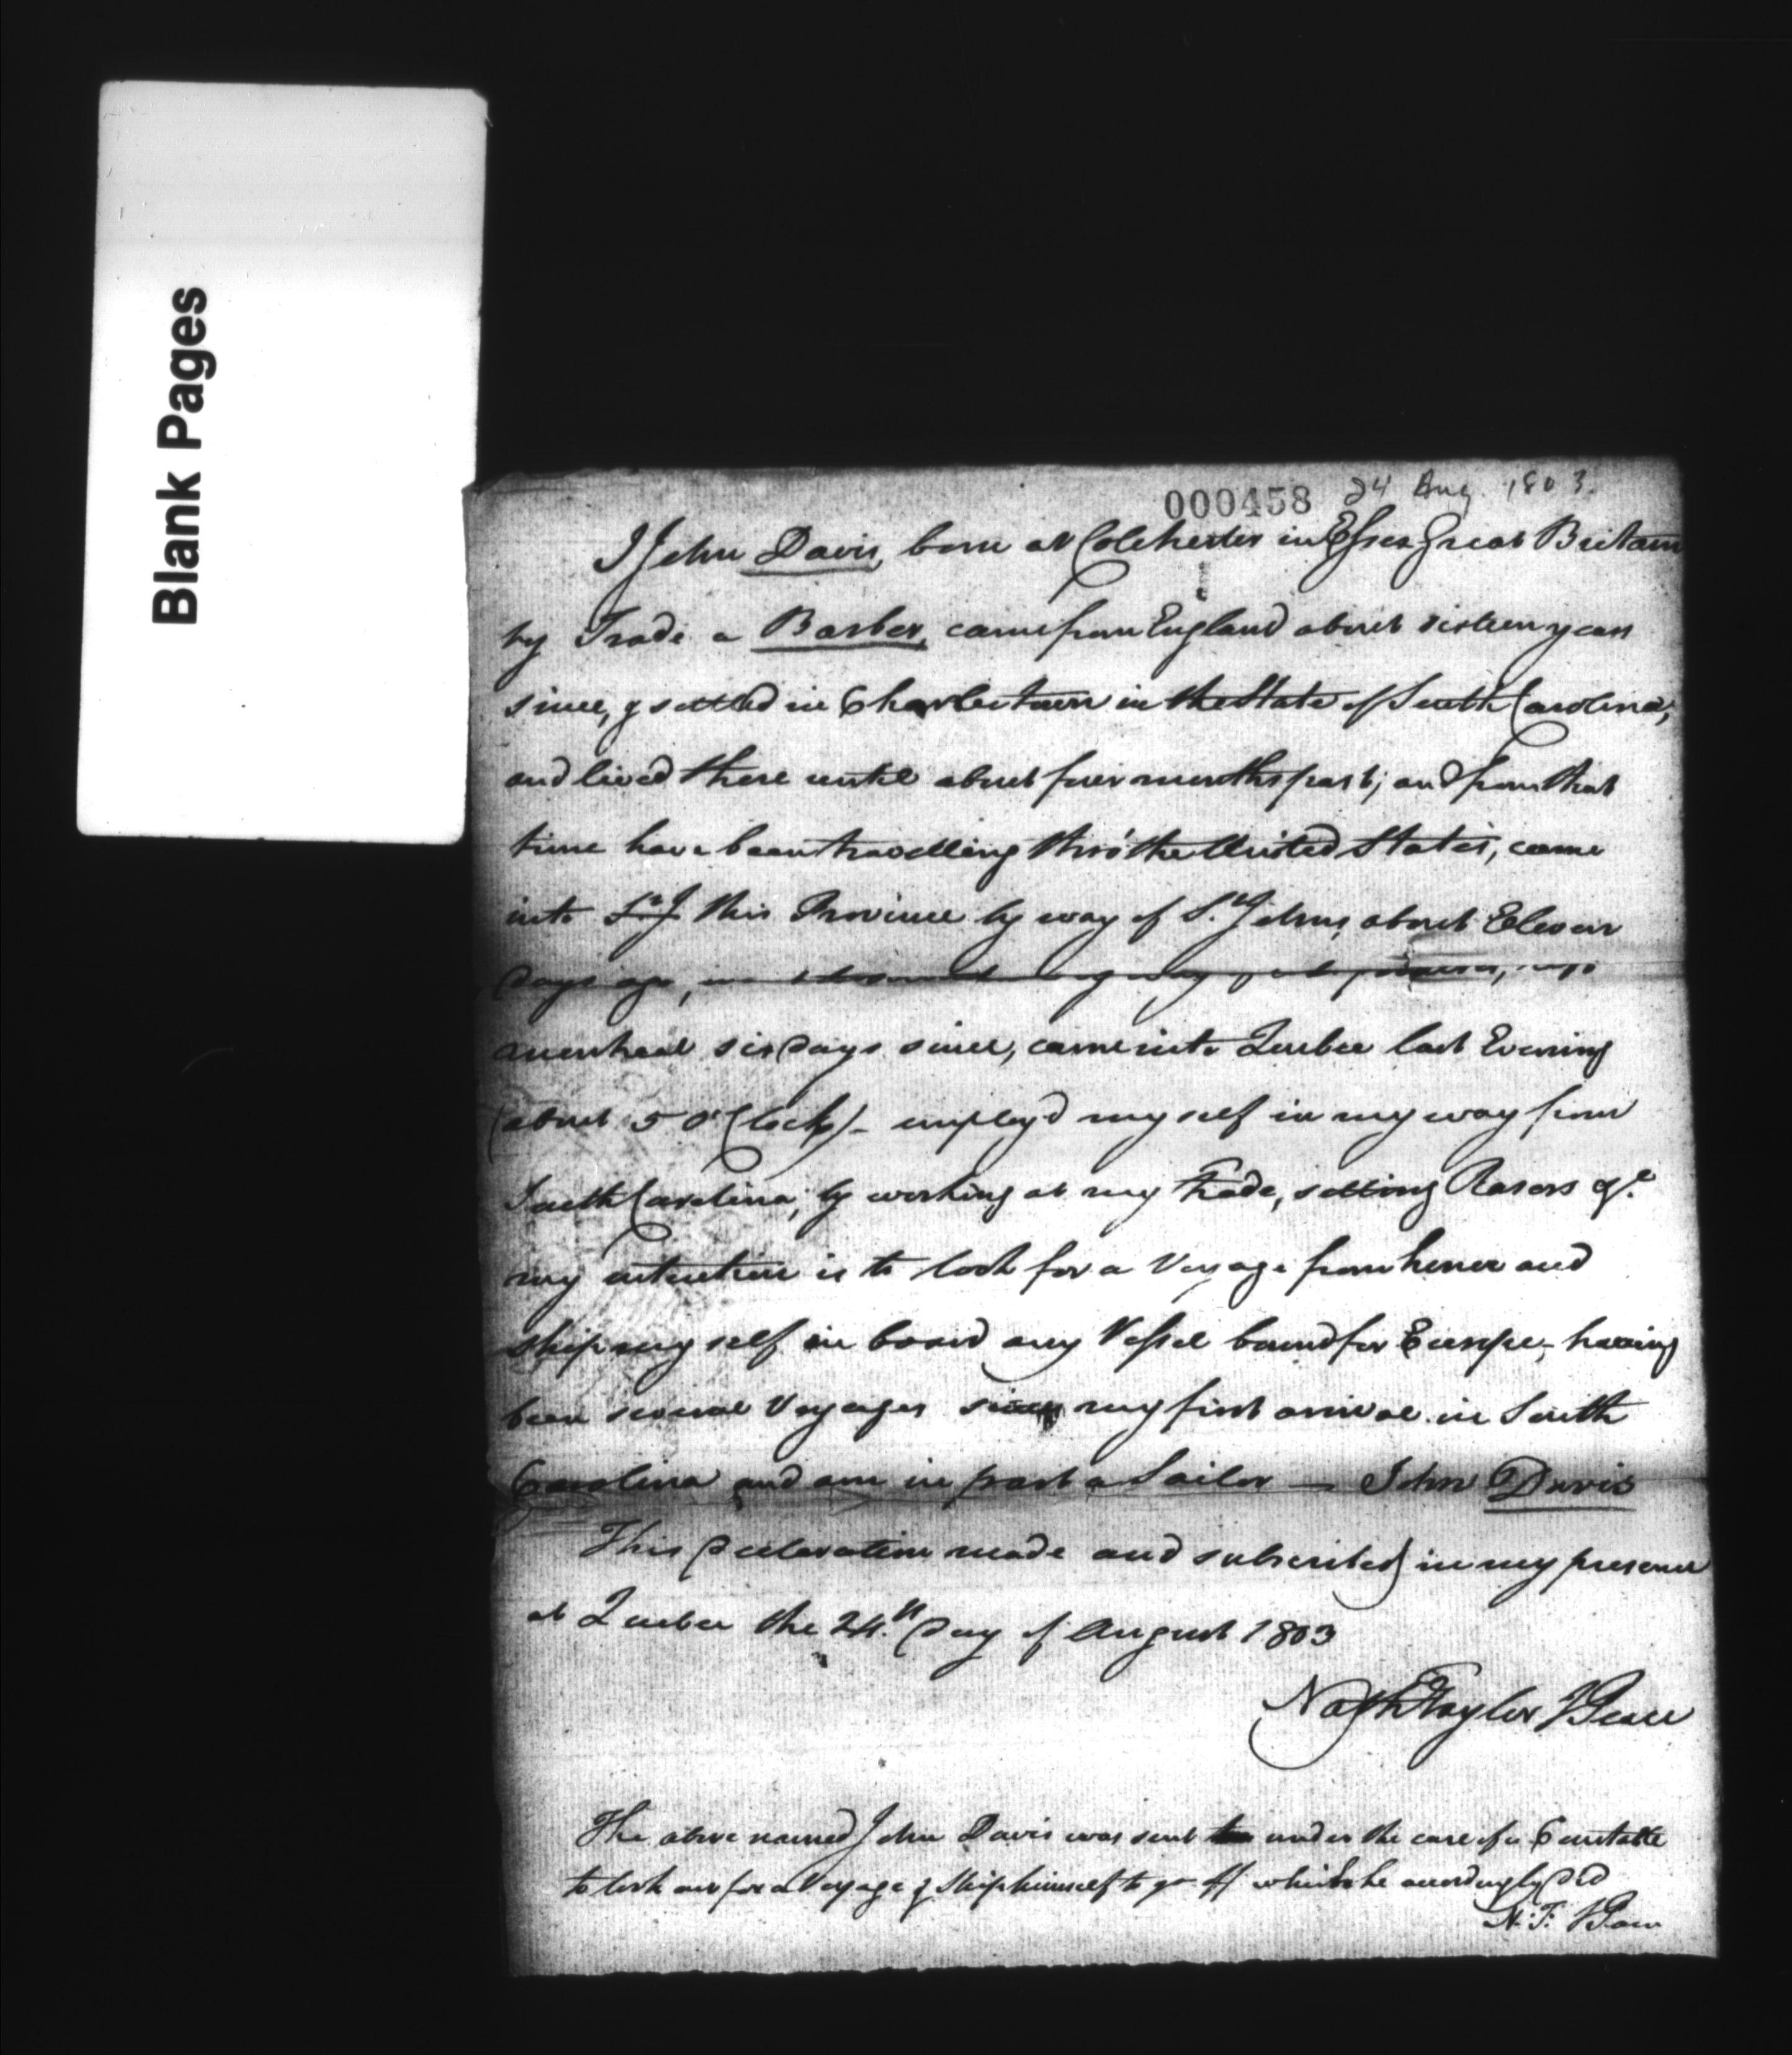 Blank Pages
000458 24 Aug. 1803.
I John Davis, born at Colchester in Essex Great Britain
by Trade a Barber, came from England about sixteen years
since, & settled in Charlestown in the State of South Carolina,
and lived there until about four months past; and from that
time have been travelling thro' the United States, came
into St J this Province by way of St. Johns, about Eleven
days ago,
Montreal six days since, came into Quebec last Evening
(about 5 O'Clock) - employ'd myself in my way from
South Carolina, by working at my Trade, setting Rasors &c
my intention is to look for a Voyage from hence and
ship my self on board any Vessel bound for Europe, having
been several Voyages since my first arrival in South
Carolina and am in part a Sailor — John Davis
This Declaration made and subscribed in my presence
at Quebec the 24.th Day of August 1803
Nath Taylor J Peace
The above named John Davis was sent under the care of a Constable
to look out for a Voyage & Ship himself to go off which he accordingly did
N: T: J Peace